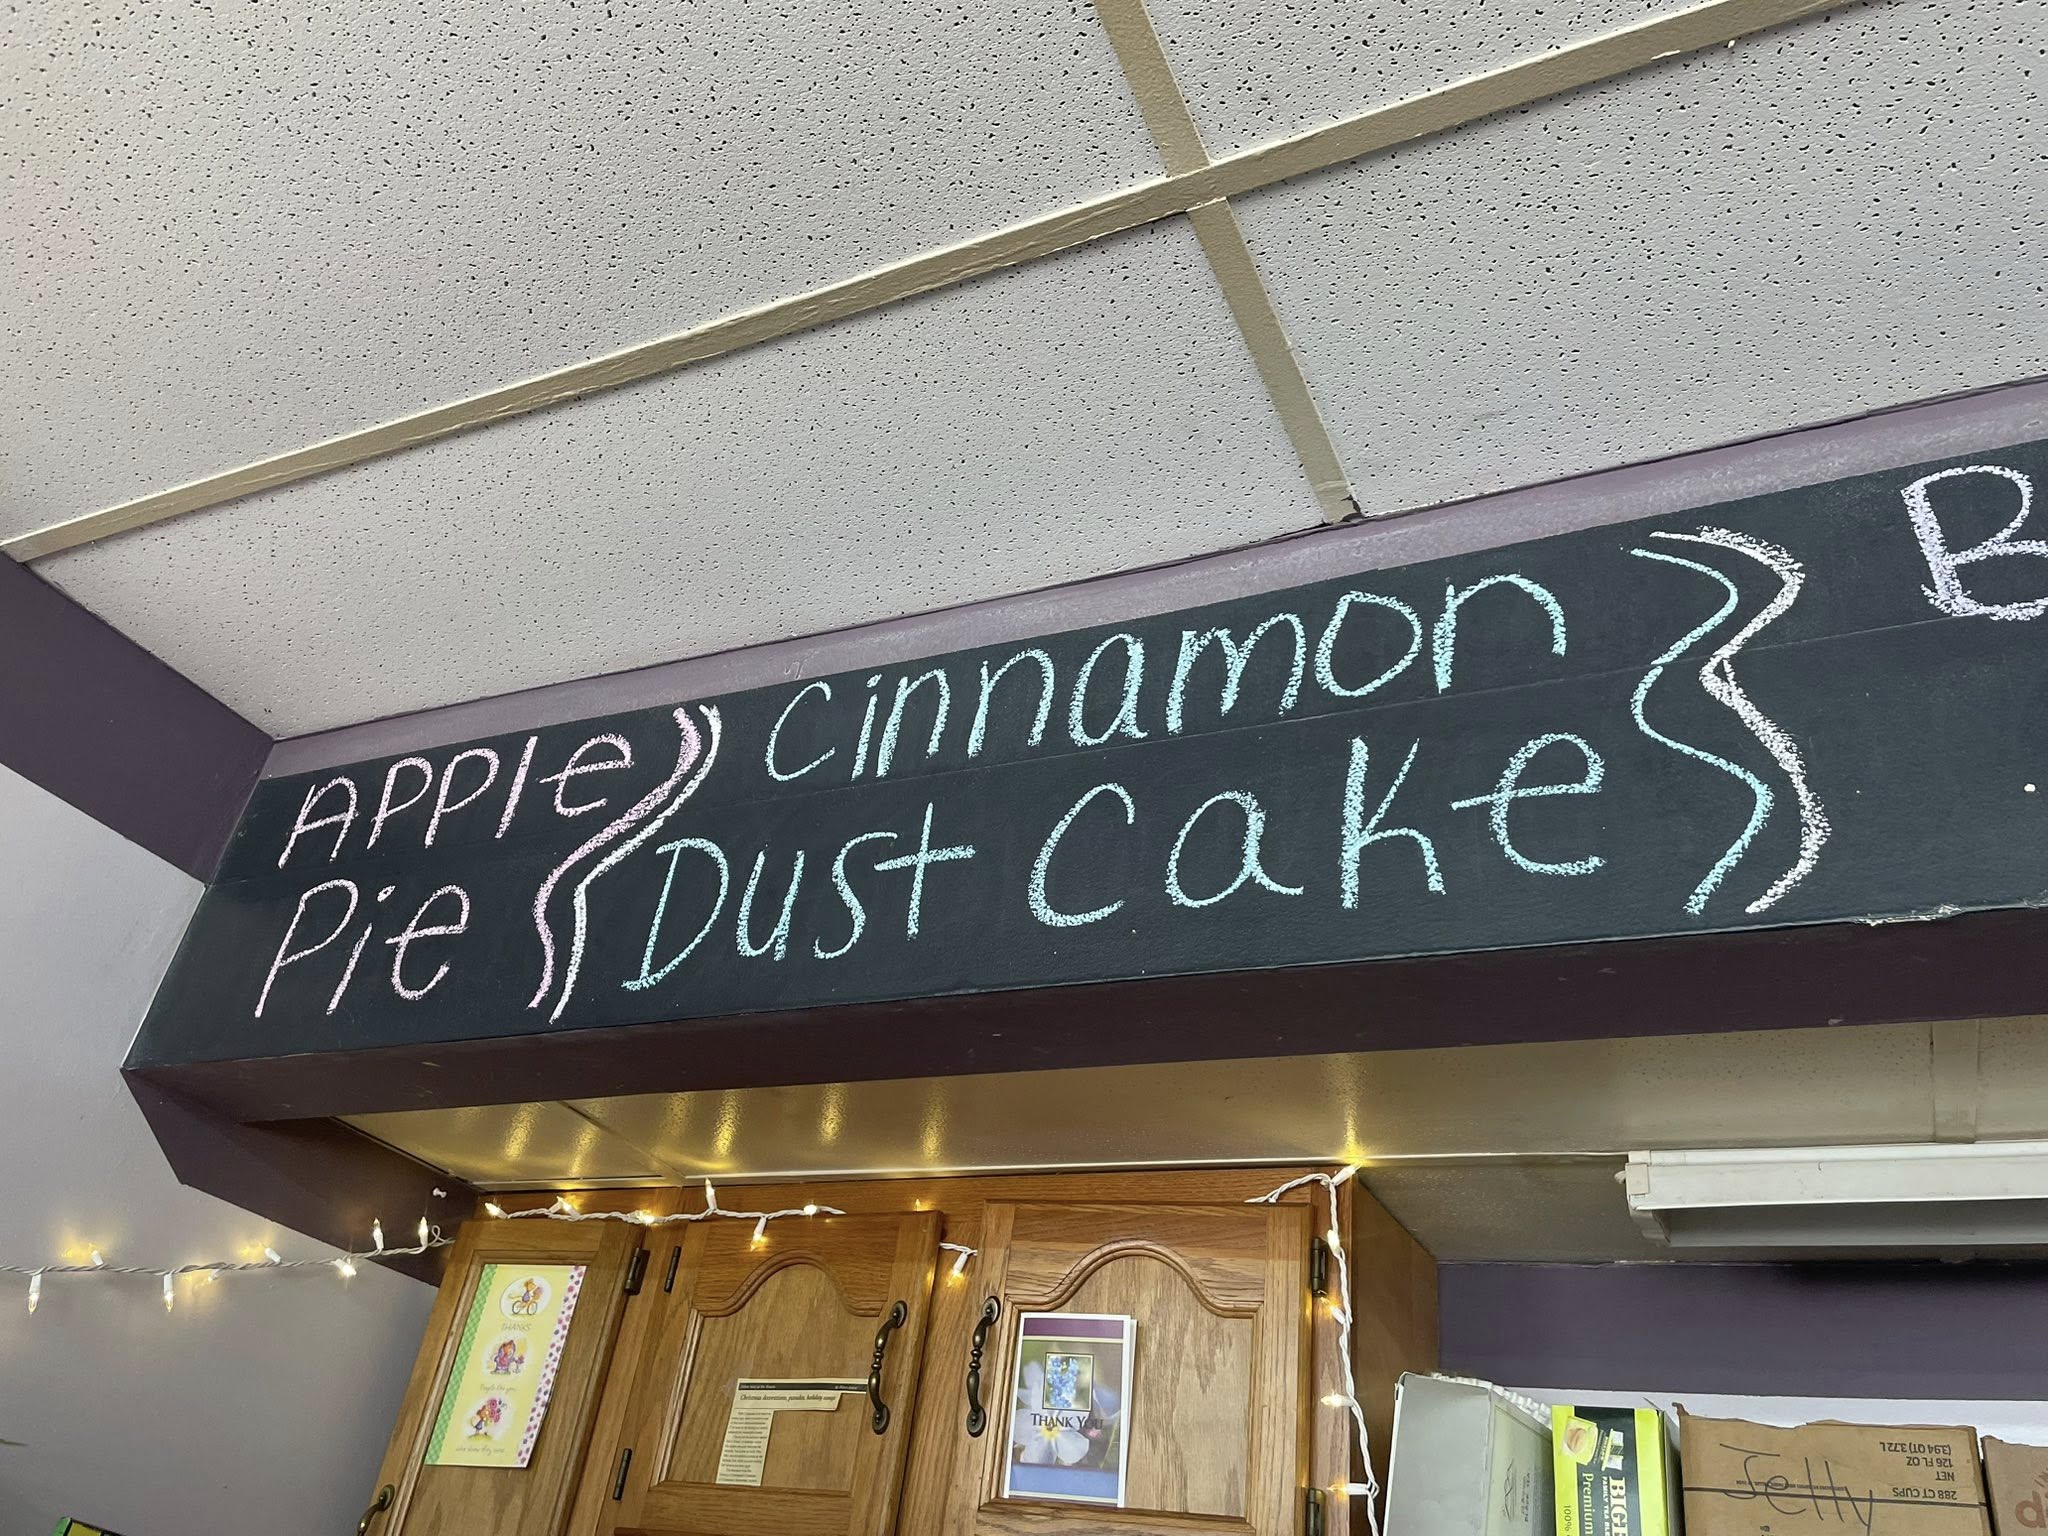 APPle
Pie
Cinnamon
Dust Cake
B
THANKS
People like you
Christmas decorations, parades, holiday songs
THANK YOU
BIGE
Premium
100%
Jelly
288 CT CUPS
NET
126 FL OZ
(3.94 QT) 3.72 L